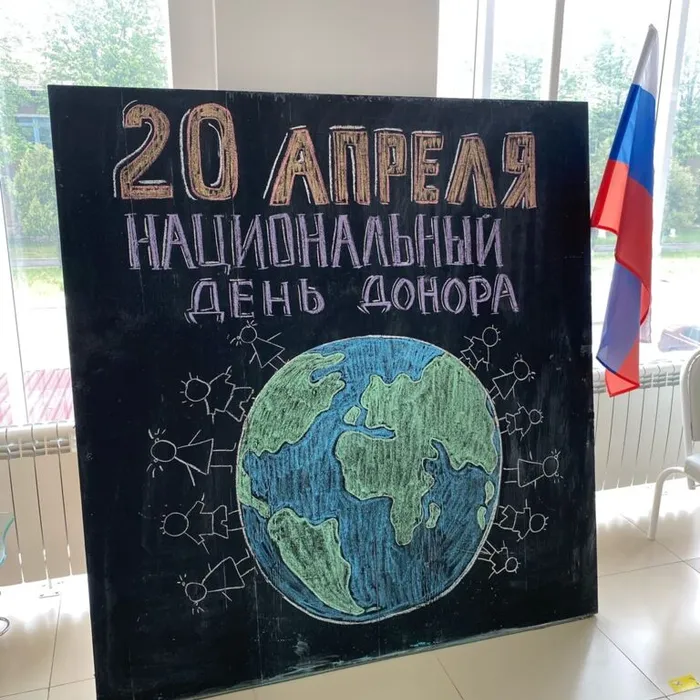 20 АПРЕЛЯ
НАЦИОНАЛЬНЫЙ
ДЕНЬ ДОНОРА